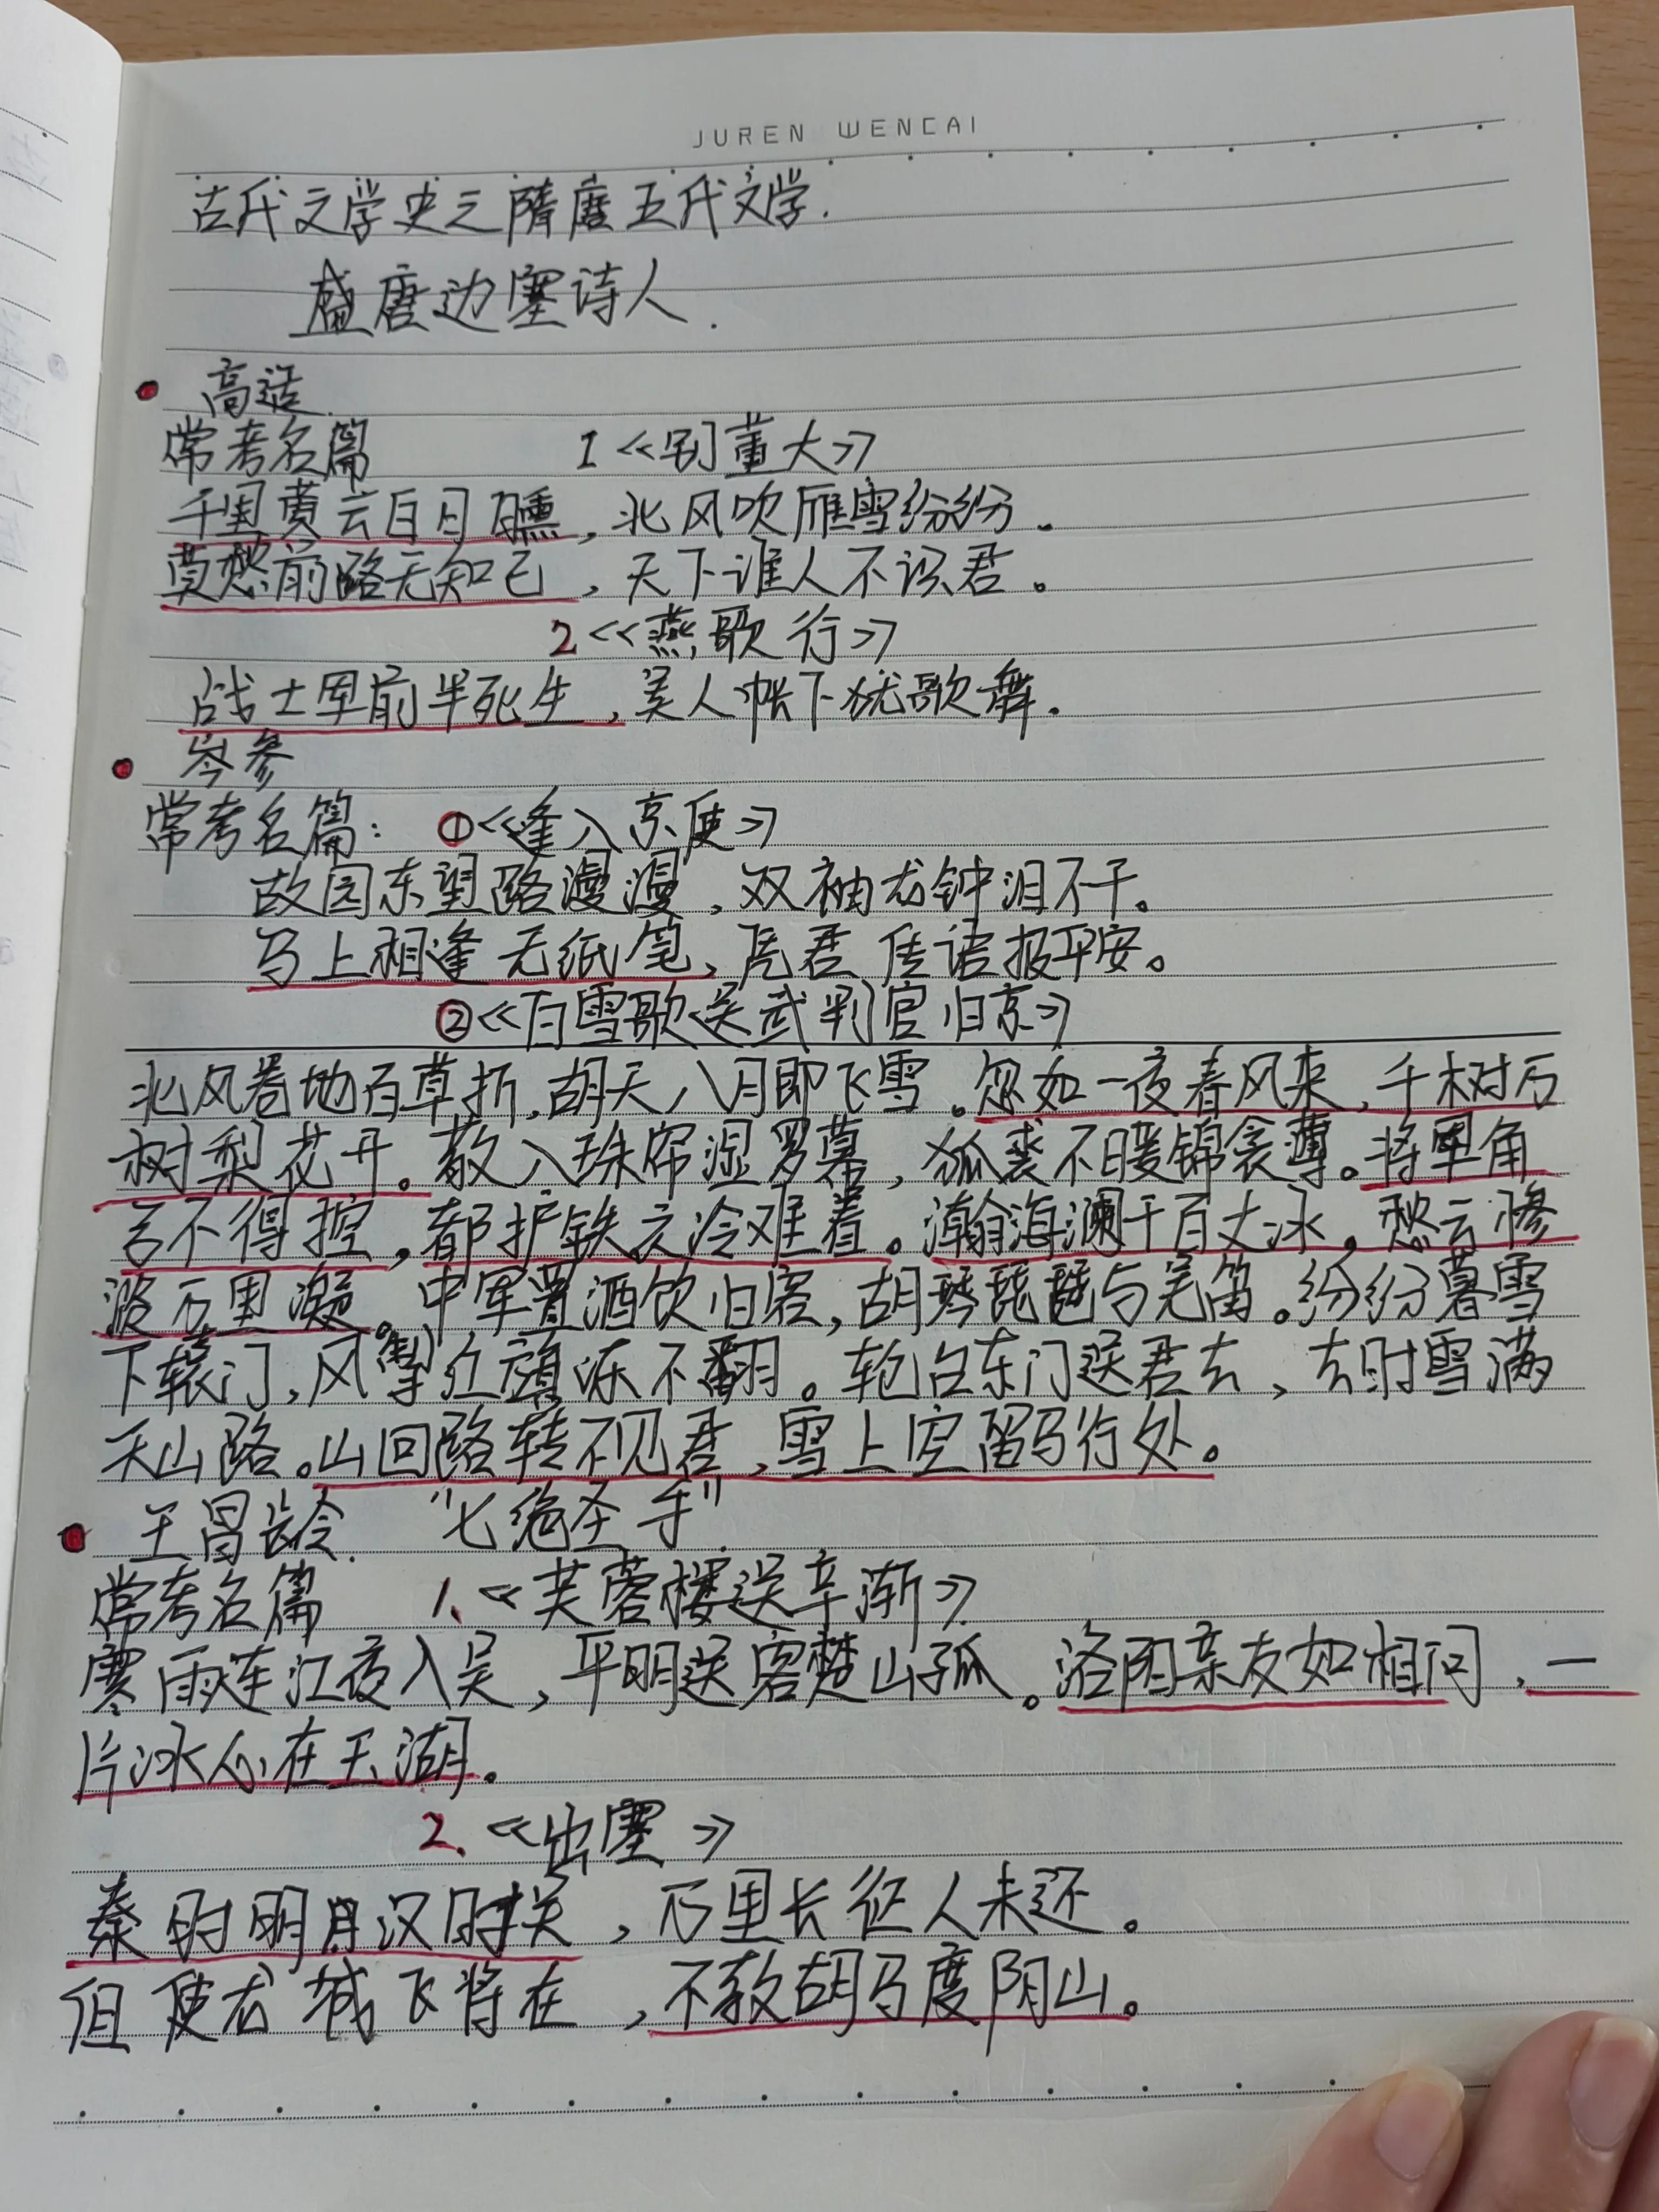 JUREN WENCAI
古代文学史之隋唐五代文学.
盛唐边塞诗人.
高适.
常考名篇 1《别董大》
千里黄云白日曛，北风吹雁雪纷纷。
莫愁前路无知己，天下谁人不识君。
2《燕歌行》
战士军前半死生，美人帐下犹歌舞.
岑参
常考名篇: ①《逢入京使》
故园东望路漫漫，双袖龙钟泪不干。
马上相逢无纸笔、凭君传语报平安。
②《白雪歌送武判官归京》
北风卷地百草折,胡天八月即飞雪。忽如一夜春风来，千树万
树梨花开。散入珠帘湿罗幕，狐裘不暖锦衾薄。将军角
弓不得控，都护铁衣冷难着。瀚海澜干百丈冰，愁云惨
淡万里凝。中军置酒饮归客，胡琴琵琶与羌笛。纷纷暮雪
下辕门，风掣红旗冻不翻。轮台东门送君去，去时雪满
天山路。山回路转不见君，雪上空留马行处。
王昌龄. "七绝圣手".
常考名篇 1、《芙蓉楼送辛渐》
寒雨连江夜入吴，平明送客楚山孤。洛阳亲友如相问，一
片冰心在玉湖。
2、《出塞》
秦时明月汉时关，万里长征人未还。
但使龙城飞将在，不教胡马度阴山。